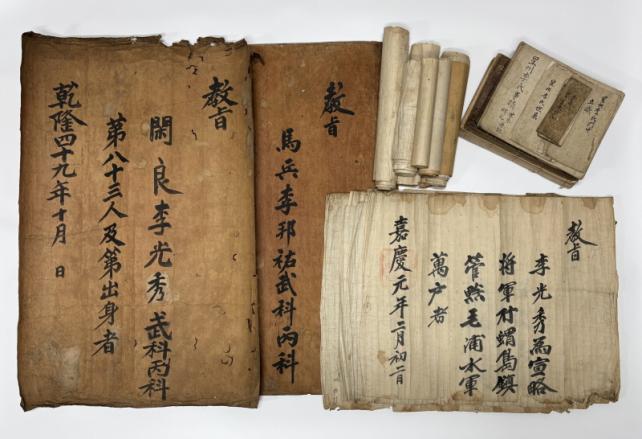 教旨
閑良李光秀武科丙科
第八十三人及第出身者
乾隆四十九年十月 日
教旨
馬兵李邦祐武科丙科
教旨
李光秀爲宣略
將軍行蝟島鎮
管黔毛浦水軍
萬戶者
嘉慶元年二月初二日